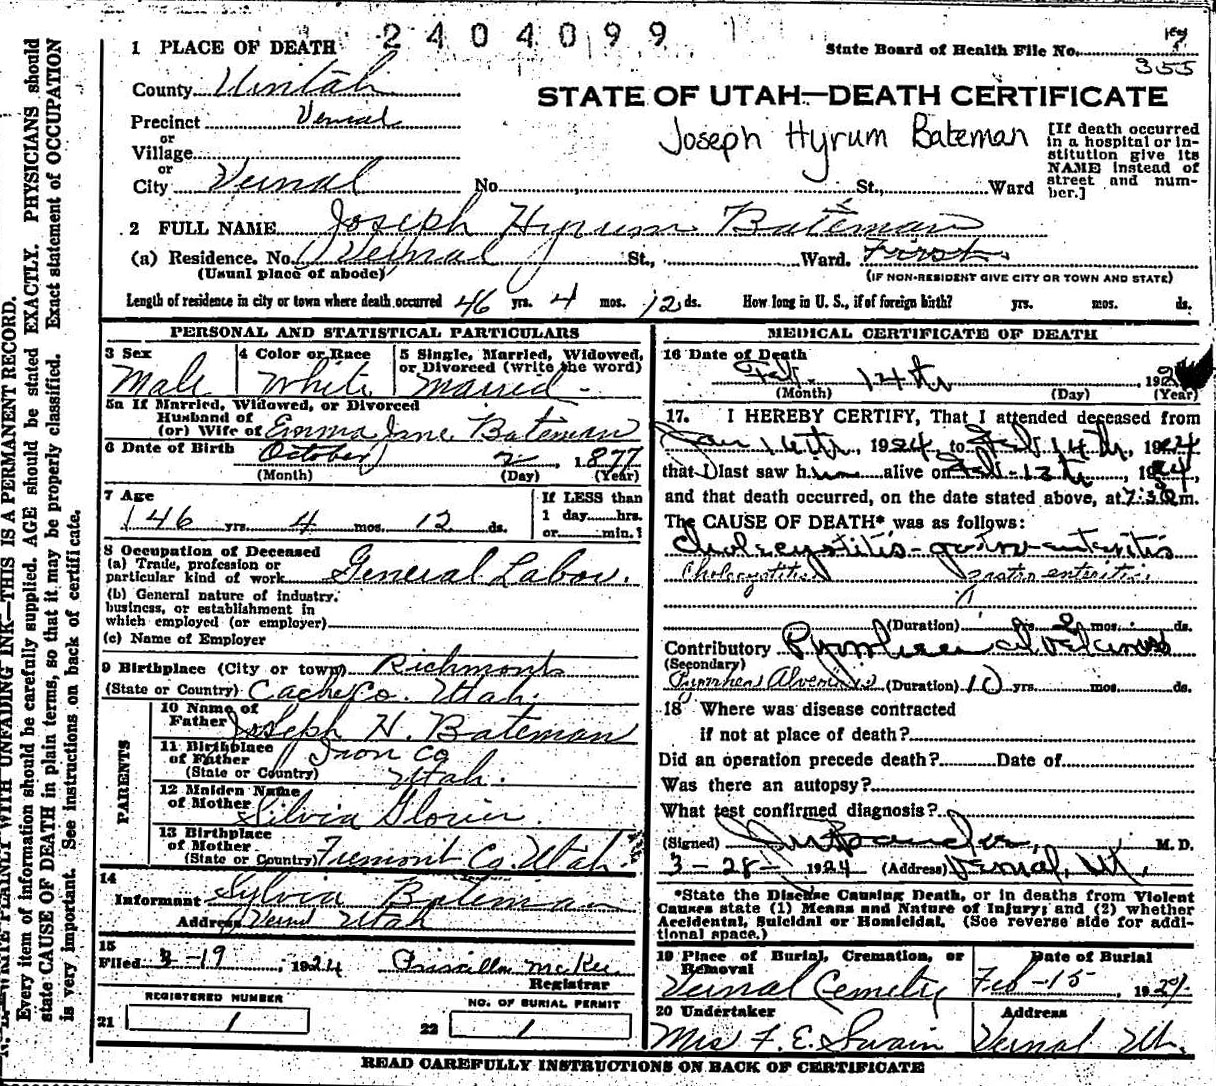 2404099
1 PLACE OF DEATH
State Board of Health File No. 7
355
County Uintah
STATE OF UTAH—DEATH CERTIFICATE
Precinct Vernal
or
Village
or
City Vernal No. St., Ward
Joseph Hyrum Bateman
[If death occurred
in a hospital or in-
stitution give its
NAME instead of
street and num-
ber.]
2 FULL NAME Joseph Hyrum Bateman
(a) Residence. No. Vernal St., Ward. First
(Usual place of abode) (IF NON-RESIDENT GIVE CITY OR TOWN AND STATE)
Length of residence in city or town where death occurred 46 yrs. 4 mos. 12 ds. How long in U. S., if of foreign birth? yrs. mos. ds.
PERSONAL AND STATISTICAL PARTICULARS
3 Sex
Male
4 Color or Race
White
5 Single, Married, Widowed,
or Divorced (write the word)
Married
5a If Married, Widowed, or Divorced
Husband of
(or) Wife of Emma Jane Bateman
6 Date of Birth October 2 1877
(Month) (Day) (Year)
7 Age
46 yrs. 4 mos. 12 ds.
If LESS than
1 day......hrs.
or......min.?
8 Occupation of Deceased
(a) Trade, profession or
particular kind of work General Labor.
(b) General nature of industry,
business, or establishment in
which employed (or employer)
(c) Name of Employer
9 Birthplace (City or town) Richmond
(State or Country) Cache Co. Utah.
PARENTS
10 Name of
Father Joseph H. Bateman
11 Birthplace
of Father Iron Co
(State or Country) Utah.
12 Maiden Name
of Mother Silvia Glover
13 Birthplace
of Mother
(State or Country) Fremont Co. Utah.
14
Informant Sylvia Bateman
Address Vernal Utah
15
Filed 3-19, 1924 Priscilla McKee
Registrar
REGISTERED NUMBER
21 1
NO. OF BURIAL PERMIT
22 1
MEDICAL CERTIFICATE OF DEATH
16 Date of Death
Feb. 14th 192
(Month) (Day) (Year)
17. I HEREBY CERTIFY, That I attended deceased from
Jan 14th, 1924, to Feb 14th, 1924
that I last saw him alive on Feb-12th, 1924,
and that death occurred, on the date stated above, at 7:30 m.
The CAUSE OF DEATH* was as follows:
Cholecystitis-gastro-enteritis
Cholecystitis gastro enteritis
(Duration) yrs. 2 mos. ds.
Contributory Pyorrhea alveolaris
(Secondary)
Pyorrhea Alveolaris (Duration) 10 yrs. mos. ds.
18 Where was disease contracted
if not at place of death?
Did an operation precede death? Date of
Was there an autopsy?
What test confirmed diagnosis?
(Signed) M. D.
3-28-1924 (Address) Vernal, Ut.
*State the Disease Causing Death, or in deaths from Violent
Causes state (1) Means and Nature of Injury; and (2) whether
Accidental, Suicidal or Homicidal. (See reverse side for addi-
tional space.)
19 Place of Burial, Cremation, or
Removal
Vernal Cemetry
Date of Burial
Feb-15, 1924
20 Undertaker
Mrs F. E. Swain
Address
Vernal Ut.
READ CAREFULLY INSTRUCTIONS ON BACK OF CERTIFICATE
WRITE PLAINLY WITH UNFADING INK—THIS IS A PERMANENT RECORD.
Every item of information should be carefully supplied. AGE should be stated EXACTLY. PHYSICIANS should
state CAUSE OF DEATH in plain terms, so that it may be properly classified. Exact statement of OCCUPATION
is very important. See instructions on back of certificate.